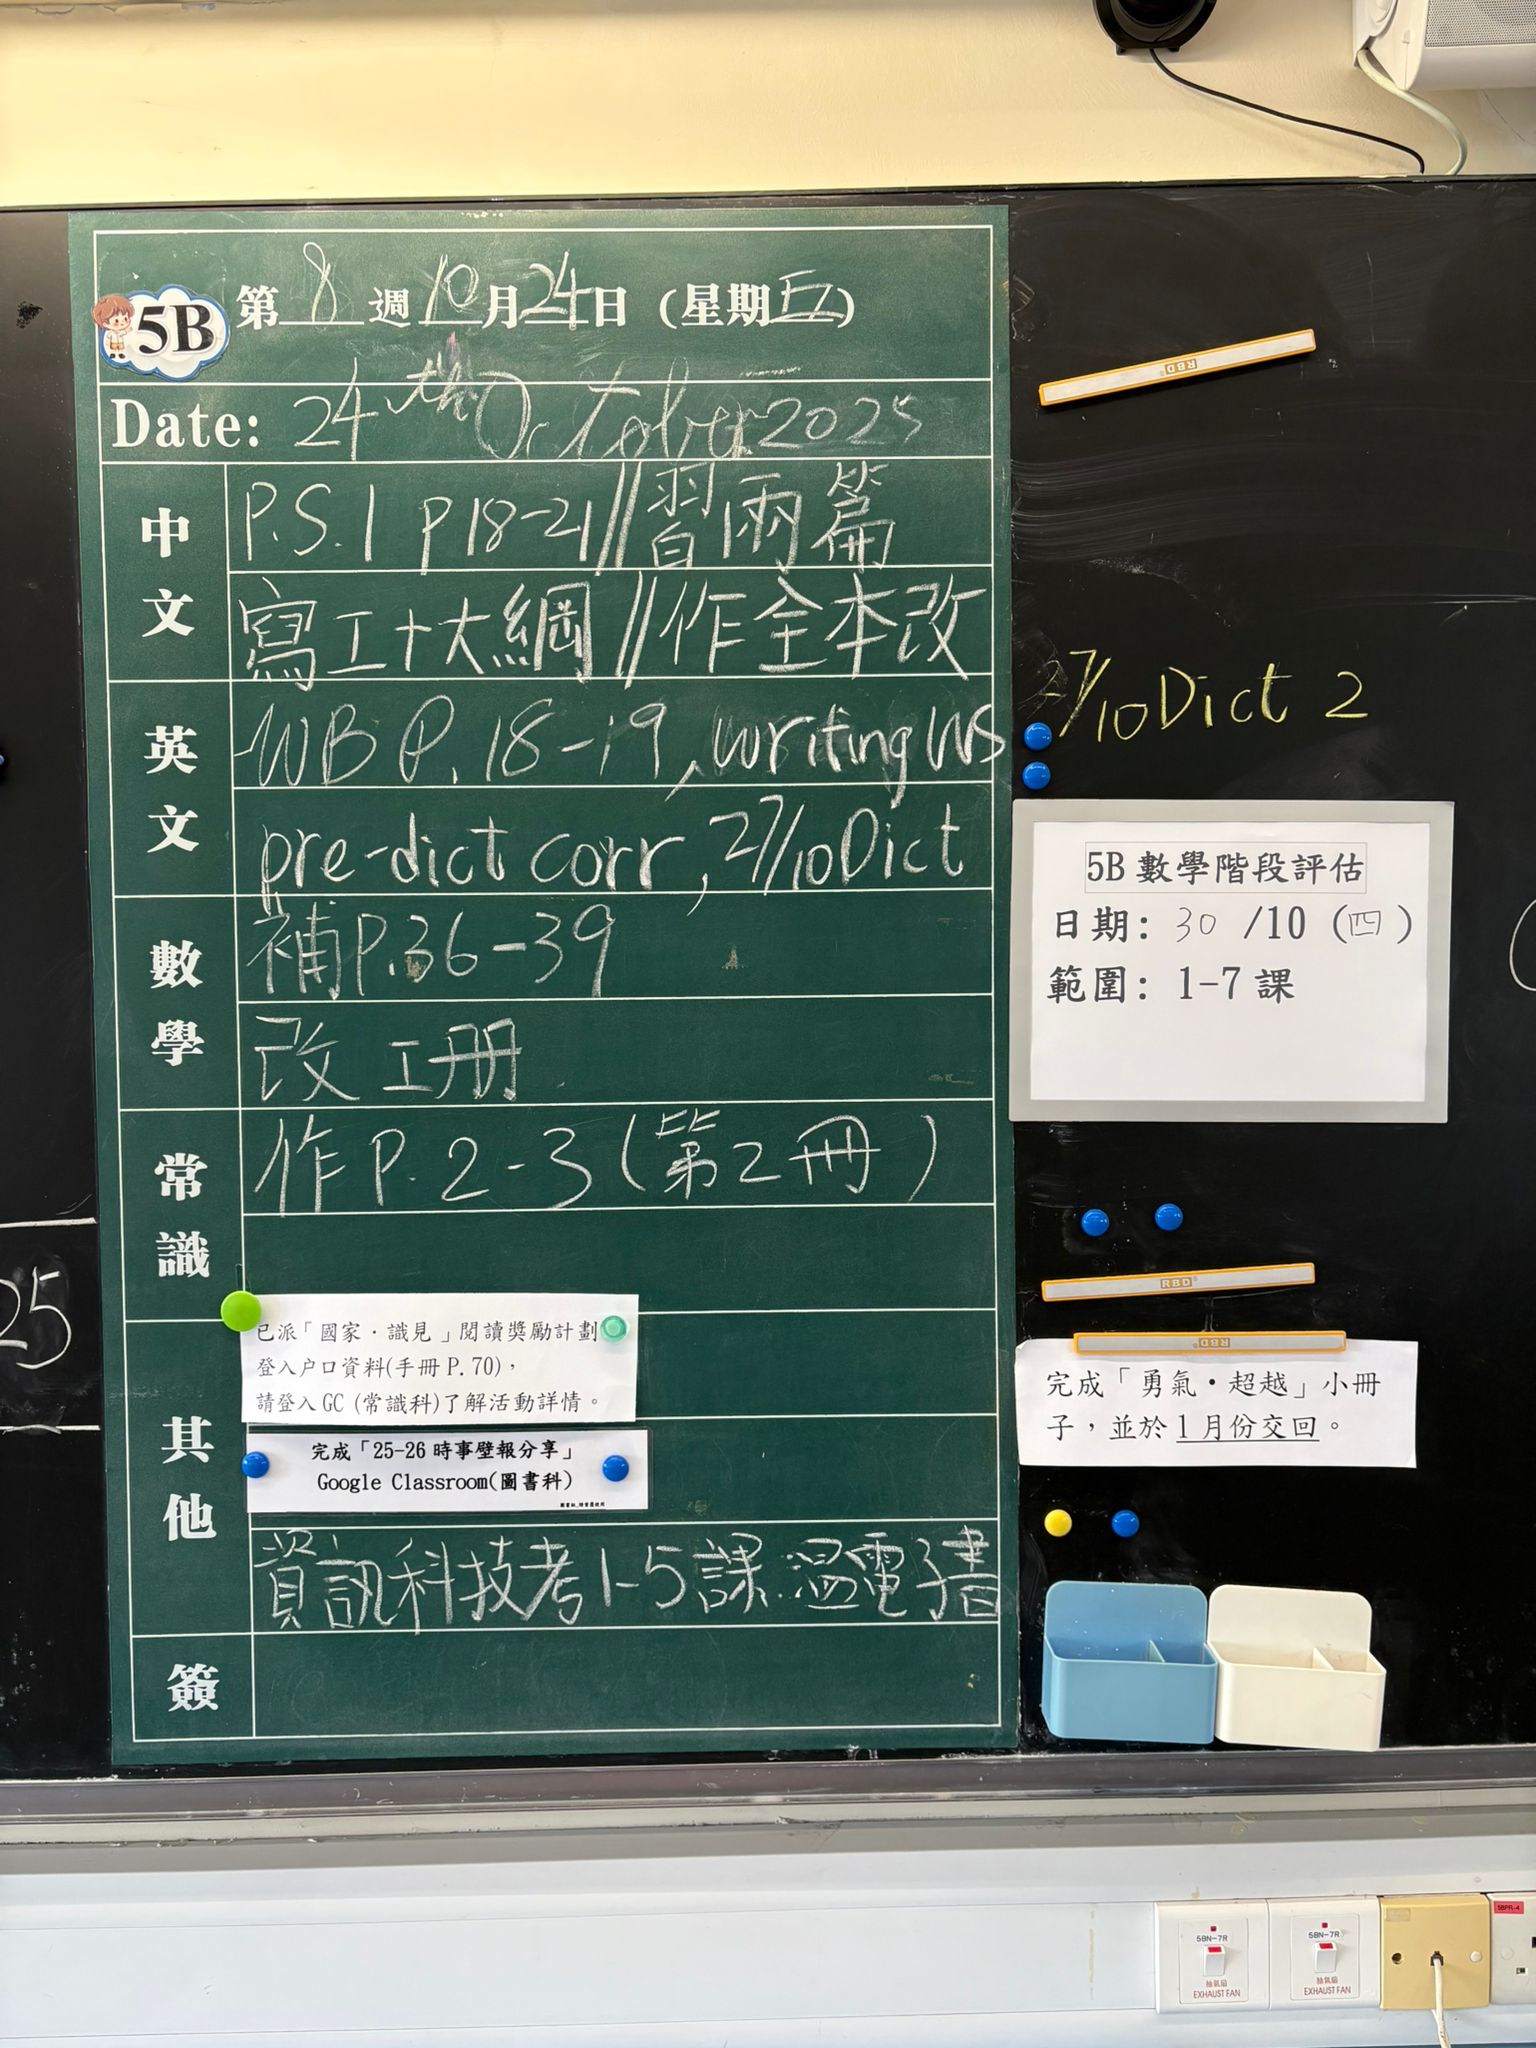 5B
第 8 週 10 月 24 日 (星期五)
Date: 24th October 2025
中文
P.S.1 P18-21//習兩篇
寫工十大綱//作全本改
英文
WB P.18-19, writing WS
pre-dict corr, 27/10 Dict
數學
補P.36-39
改工册
常識
作P.2-3(第2冊)
其他
已派「國家．識見」閱讀獎勵計劃
登入户口資料(手冊 P.70),
請登入 GC (常識科)了解活動詳情。
完成「25-26 時事壁報分享」
Google Classroom(圖書科)
資訊科技考1-5課 溫電子書
簽
27/10 Dict 2
5B 數學階段評估
日期: 30 /10 (四)
範圍: 1-7 課
完成「勇氣・超越」小冊
子，並於 1 月份交回。
RBD
RBD
RBD
25
5BN-7R
抽氣扇
EXHAUST FAN
5BN-7R
抽氣扇
EXHAUST FAN
5BPR-4